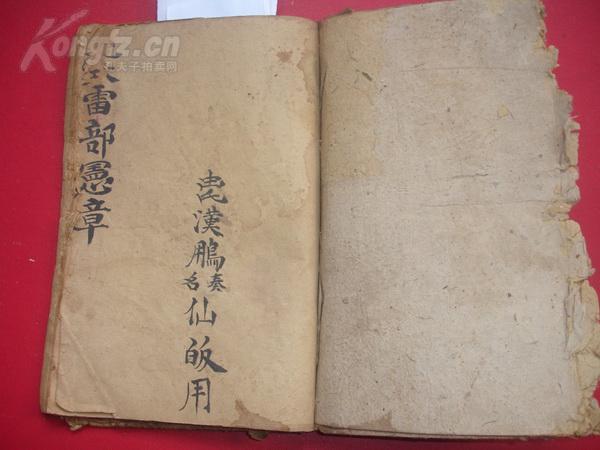 Kongfz.cn
孔夫子拍卖网
雷部憲章
漢鵬奏名仙皈用